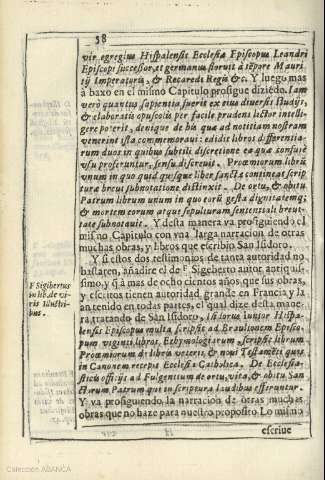 58
vir egregius Hispalensis Ecclesiæ Episcopus Leandri
Episcopi successor, et germanus floruit à tẽpore Mauri
tij Imperatoris, & Recaredi Regis &c. Y luego mas
à baxo en el mismo Capitulo prosigue diziẽdo. Iam
verò quantus sapientia fuerit ex eius diuersis studijs,
& elaboratis opusculis per facile prudens lector intelli-
gere poterit, denique de his quæ ad notitiam nostram
venerint ista commemorauit: edidit libros differentia-
rum duos in quibus subtili discretione ea quæ confusè
vsu proferuntur, sensu discreuit. Proœmiorum librũ
vnum in quo quid quisque liber sanctæ contineat scrip
turæ breui subnotatione distinxit. De ortu, & obitu
Patrum librum vnum in quo eorũ gesta dignitatemq;
& mortem eorum atque sepulturam sententiali breui-
tate subnotauit. Y desta manera va prosiguiendo el
mismo Capitulo con vna larga narracion de otras
muchas obras, y libros que escribio San Isidoro.
Y si estos dos testimonios de tanta autoridad no
bastaren, añadire el de F. Sigeberto autor antiquis-
simo, y q̃ à mas de ocho cientos años, que sus obras,
y escritos tienen autoridad grande en Francia y la
an tenido en todas partes, el qual dize desta mane-
ra, tratando de San Isidoro, Isidorus iunior Hispa-
lensis Episcopus multa scripsit ad Braulionem Episco-
pum viginti libros Ethymologiarum, scripsit librum
Proœmiorum de libris veteris, & noui Testamẽti quos
in Canonem recepit Ecclesia Catholica. De Ecclesia-
sticis officijs ad Fulgentium de ortu, vita, & obitu San
ctorum Patrum qui in scriptura laudibus efferuntur.
Y va prosiguiendo la narracion de otras muchas
obras que no haze para nuestro proposito. Lo mismo
escriue
F Sigibertus
in lib. de vi-
ris Illustri-
bus.
Colección ABANCA